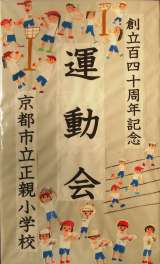 創立百四十周年記念
運動会
京都市立正親小学校